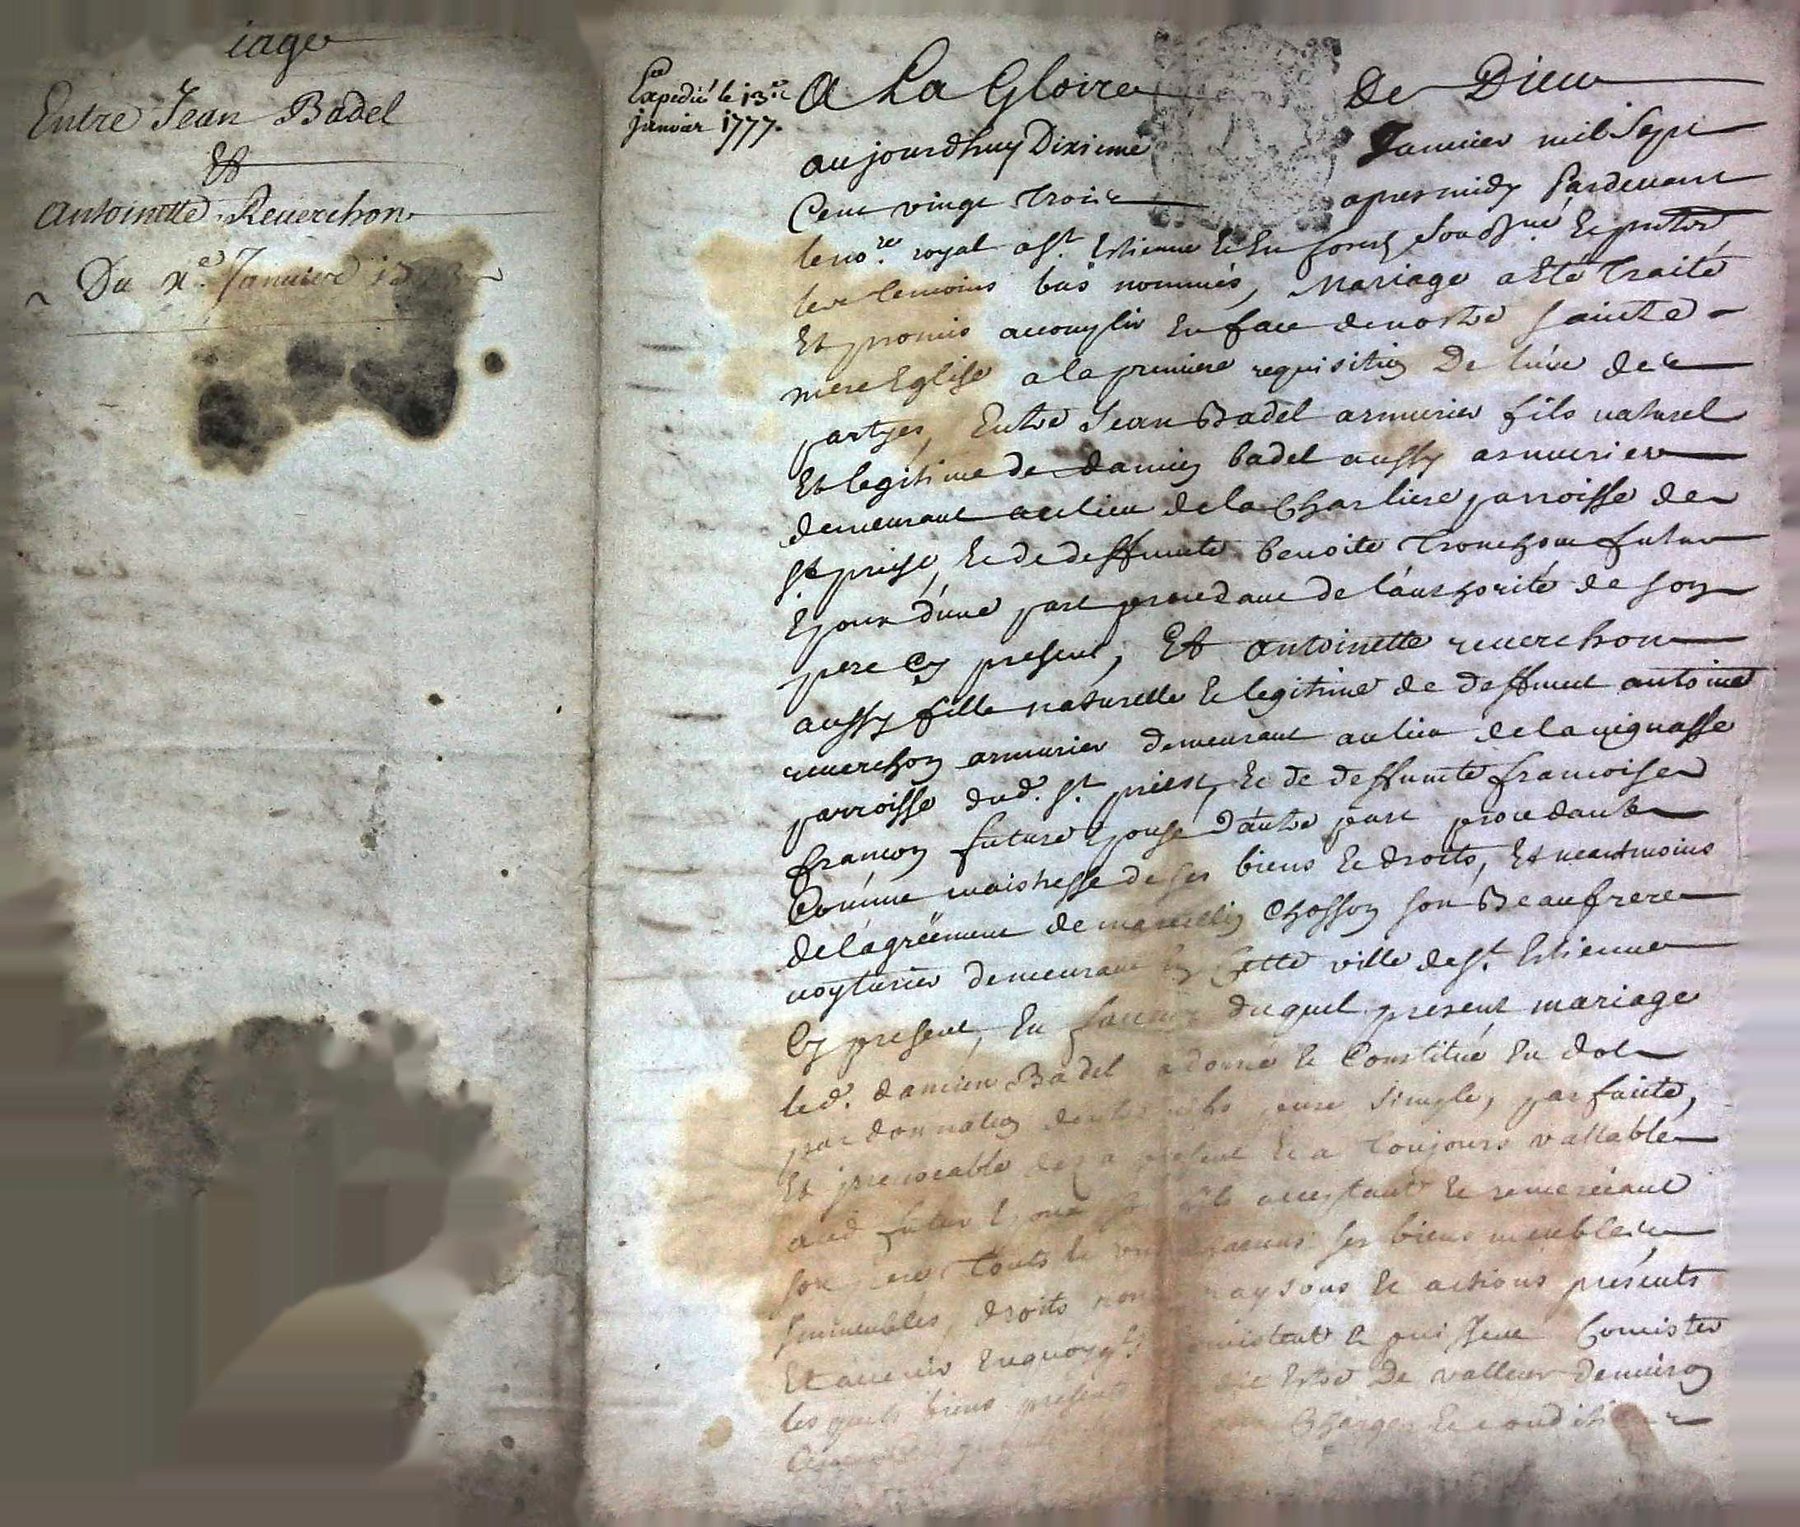 iage
Entre Jean Badel
&
Antoinette Reverchon
Du x.e Janvier 17
Expedié le 13.e
janvier 1777.
A La Gloire De Dieu
aujourdhuy Dixieme Janvier mil Sept
Cent vingt Trois apres midy Pardevant
le no.re royal a St. Estienne En forest Soussné Et presents
les temoins bas nommés, Mariage a Eté Traité
Et promis accomplir En face de nostre Sainte
mere Eglise a la premiere requisition De l'une des
partyes, Entre Jean Badel armurier fils naturel
Et legitime de damien badel aussy armurier
demeurant au lieu de la Charliere parroisse de
St. priest, Et de deffunte benoite Tronchon futur
Epoux d'une part procedant de l'authorité de son
pere Cy present, Et Antoinette reverchon
aussy fille naturelle Et legitime de deffunt antoine
reverchon armurier demeurant au lieu de la vignasse
parroisse dud. St. priest, Et de deffunte francoise
francon future Epouse d'autre part procedante
Comme maistresse de ses biens Et droits, Et neantmoins
de l'agréement de marcellin Chosson son Beaufrere
voyturier demeurant En Cette ville de St. Estienne
Cy present, En faveur duquel present mariage
led. damien Badel a donné Et Constitué En dot
par donnation pure Simple, parfaite,
Et irrevocable des a present Et a Toujours vallable
aud futur Epoux fils acceptant Et remerciant
son pere Touts Et ses biens meubles
Immeubles, droits noms raysons Et actions présents
Et avenir Enquoy qu'ils Consistent Et puissent Consister
lesquels biens présents Estre De valleur denviron
Charges Et conditions